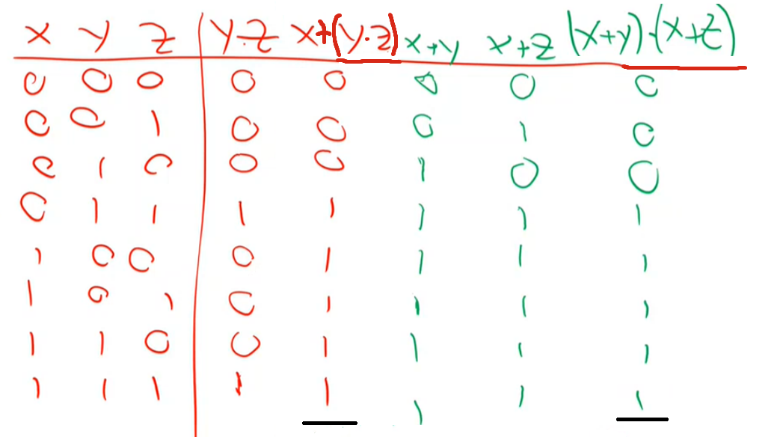 x y z y.z x+(y.z) x+y x+z (x+y).(x+z)
0 0 0 0 0 0 0 0
0 0 1 0 0 0 1 0
0 1 0 0 0 1 0 0
0 1 1 1 1 1 1 1
1 0 0 0 1 1 1 1
1 0 1 0 1 1 1 1
1 1 0 0 1 1 1 1
1 1 1 1 1 1 1 1